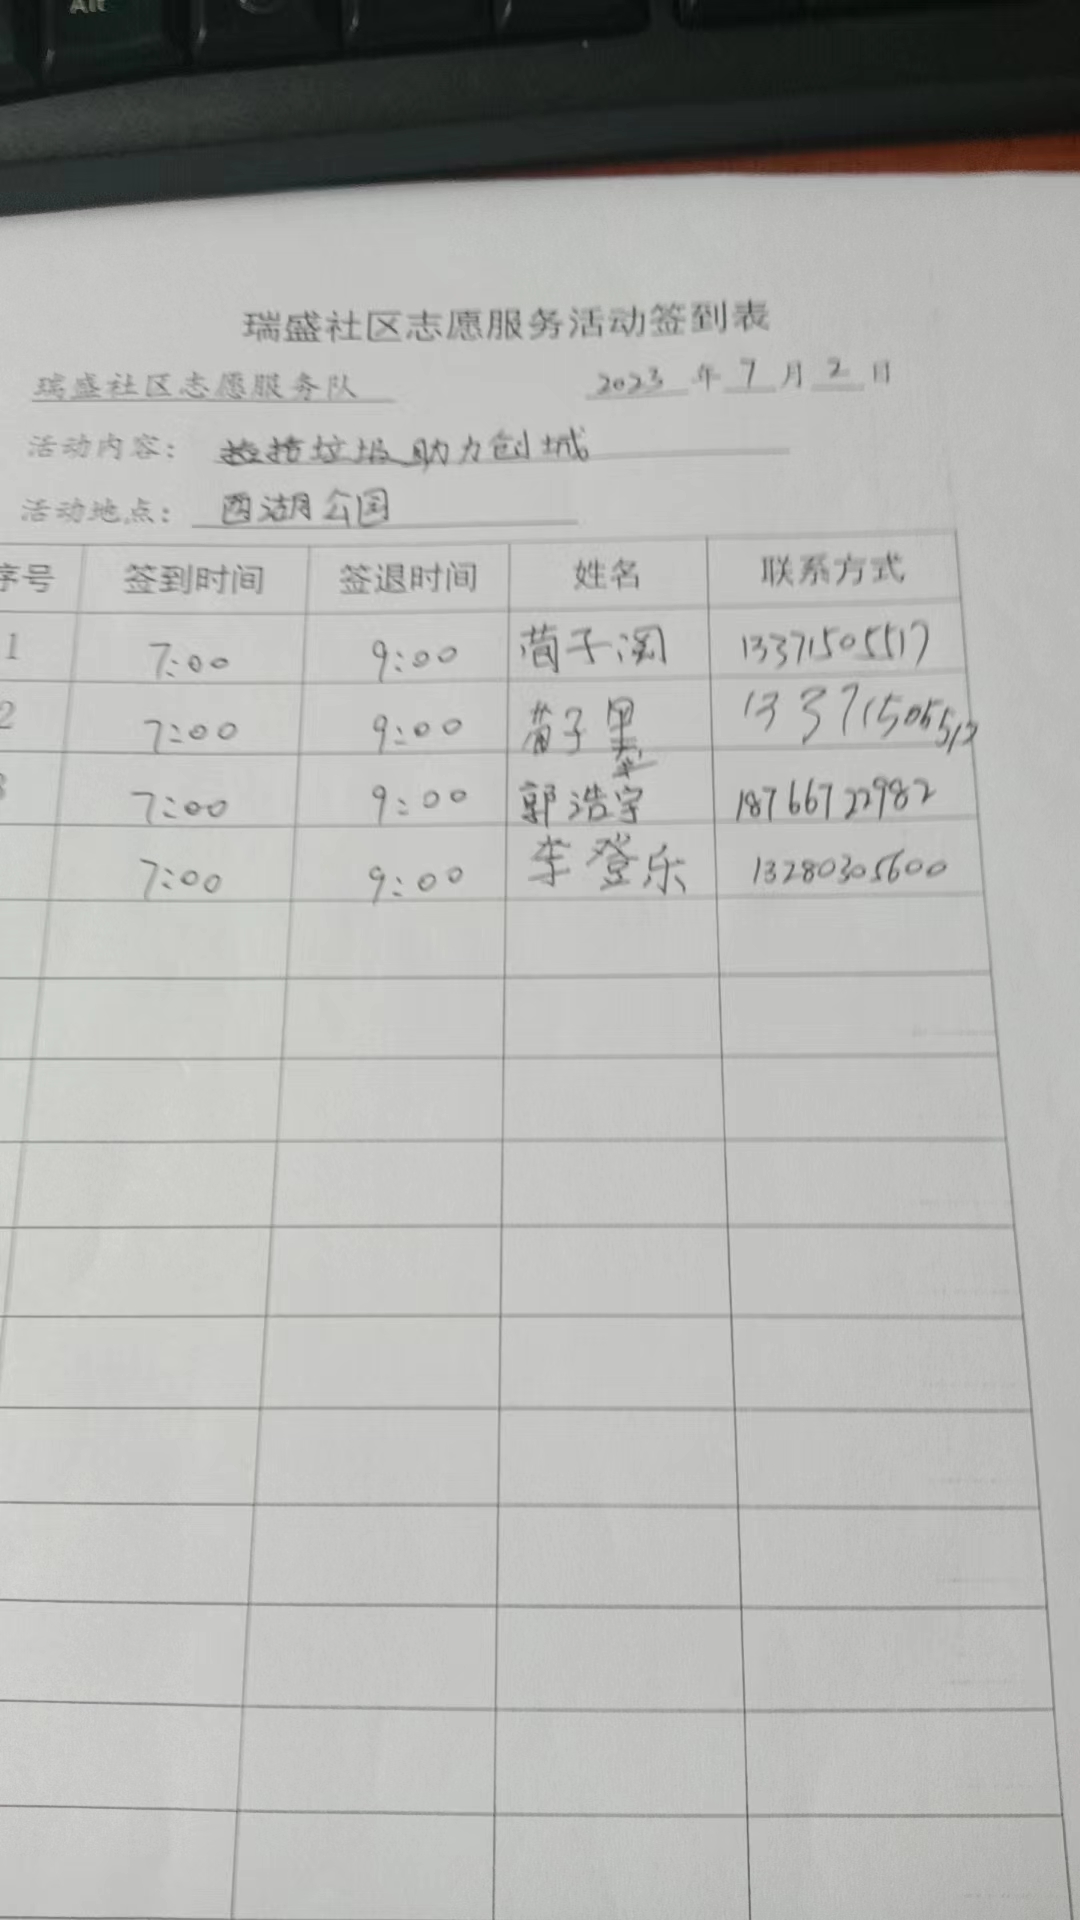 Alt
瑞盛社区志愿服务活动签到表
瑞盛社区志愿服务队 2023 年 7 月 2 日
活动内容: 捡拾垃圾助力创城
活动地点: 西湖公园
序号 签到时间 签退时间 姓名 联系方式
1 7:00 9:00 荀子淘 13371505517
2 7:00 9:00 荀子 13371505512
3 7:00 9:00 郭浩宇 18766722982
7:00 9:00 李登乐 13280305600